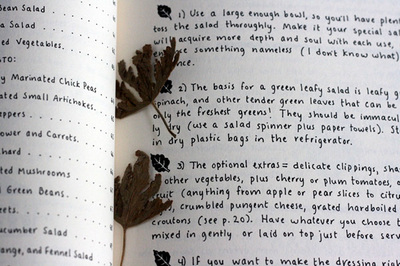 Bean Salad . . . .
ed Salad . . . . .
ed Vegetables. . . .
TO:
y Marinated Chick Peas
ated Small Artichokes.
ppers . . . .
ower and Carrots.
hard . . .
ted Mushrooms
l Green Beans.
eets. . . .
ucumber Salad
ange, and Fennel Salad
1) Use a large enough bowl, so you'll have plent
toss the salad thoroughly. Make it your special sal
will acquire more depth and soul with each use,
se something nameless (I don't know what)
nce.
2) The basis for a green leafy salad is leafy g
spinach, and other tender green leaves that can be
only the freshest greens! They should be immacul
ly dry (use a salad spinner plus paper towels). St
in dry plastic bags in the refrigerator.
3) The optional extras = delicate clippings, sha
other vegetables, plus cherry or plum tomatoes, o
uit (anything from apple or pear slices to citru
, crumbled pungent cheese, grated hardboiled
croutons (see p. 20). Have whatever you choose t
mixed in gently or laid on top just before serv
4) If you want to make the dressing righ